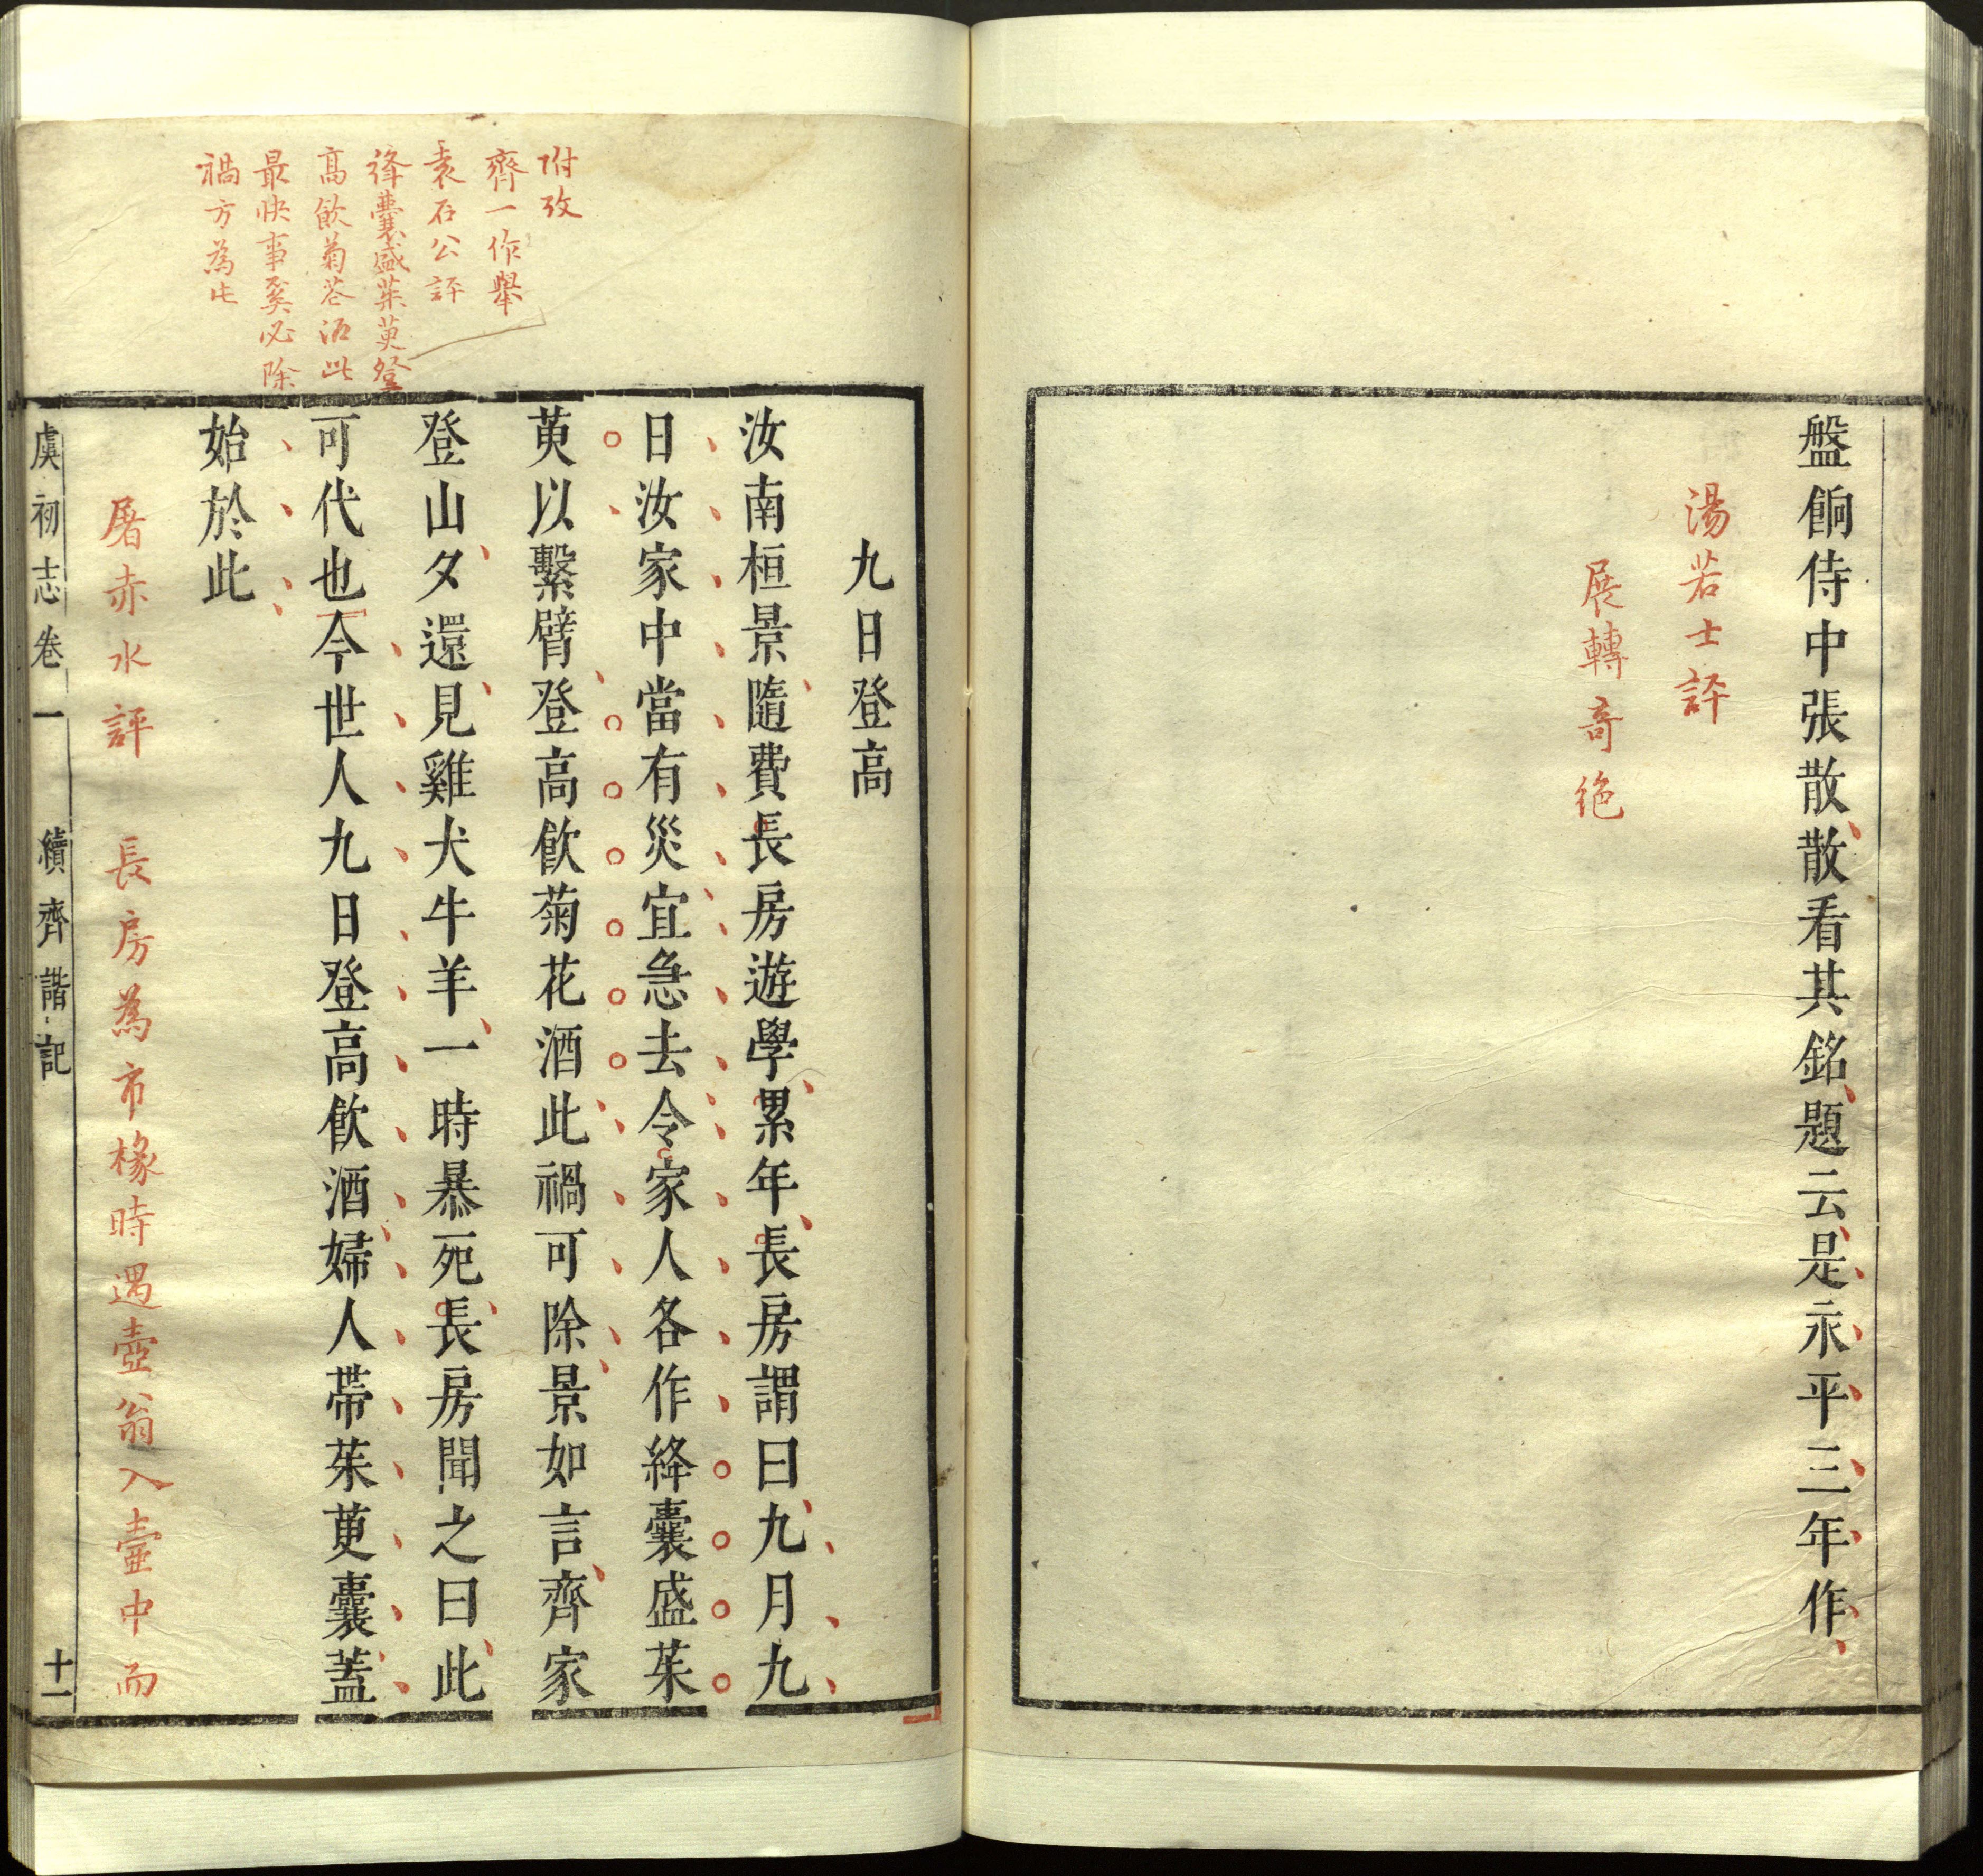 盤餉侍中張散散看其銘題云是永平三年作
湯若士評
展轉奇絶
附攷
齊一作舉
袁石公評
絳囊盛茱萸登
高飲菊花酒此
最快事奚必除
禍方為此
九日登高
汝南桓景隨費長房遊學累年長房謂曰九月九
日汝家中當有災宜急去令家人各作絳囊盛茱
萸以繫臂登高飲菊花酒此禍可除景如言齊家
登山夕還見雞犬牛羊一時暴死長房聞之曰此
可代也今世人九日登高飲酒婦人帶茱萸囊蓋
始於此
屠赤水評 長房為市椽時遇壺翁入壺中而
虞初志卷一 續齊諧記 十一